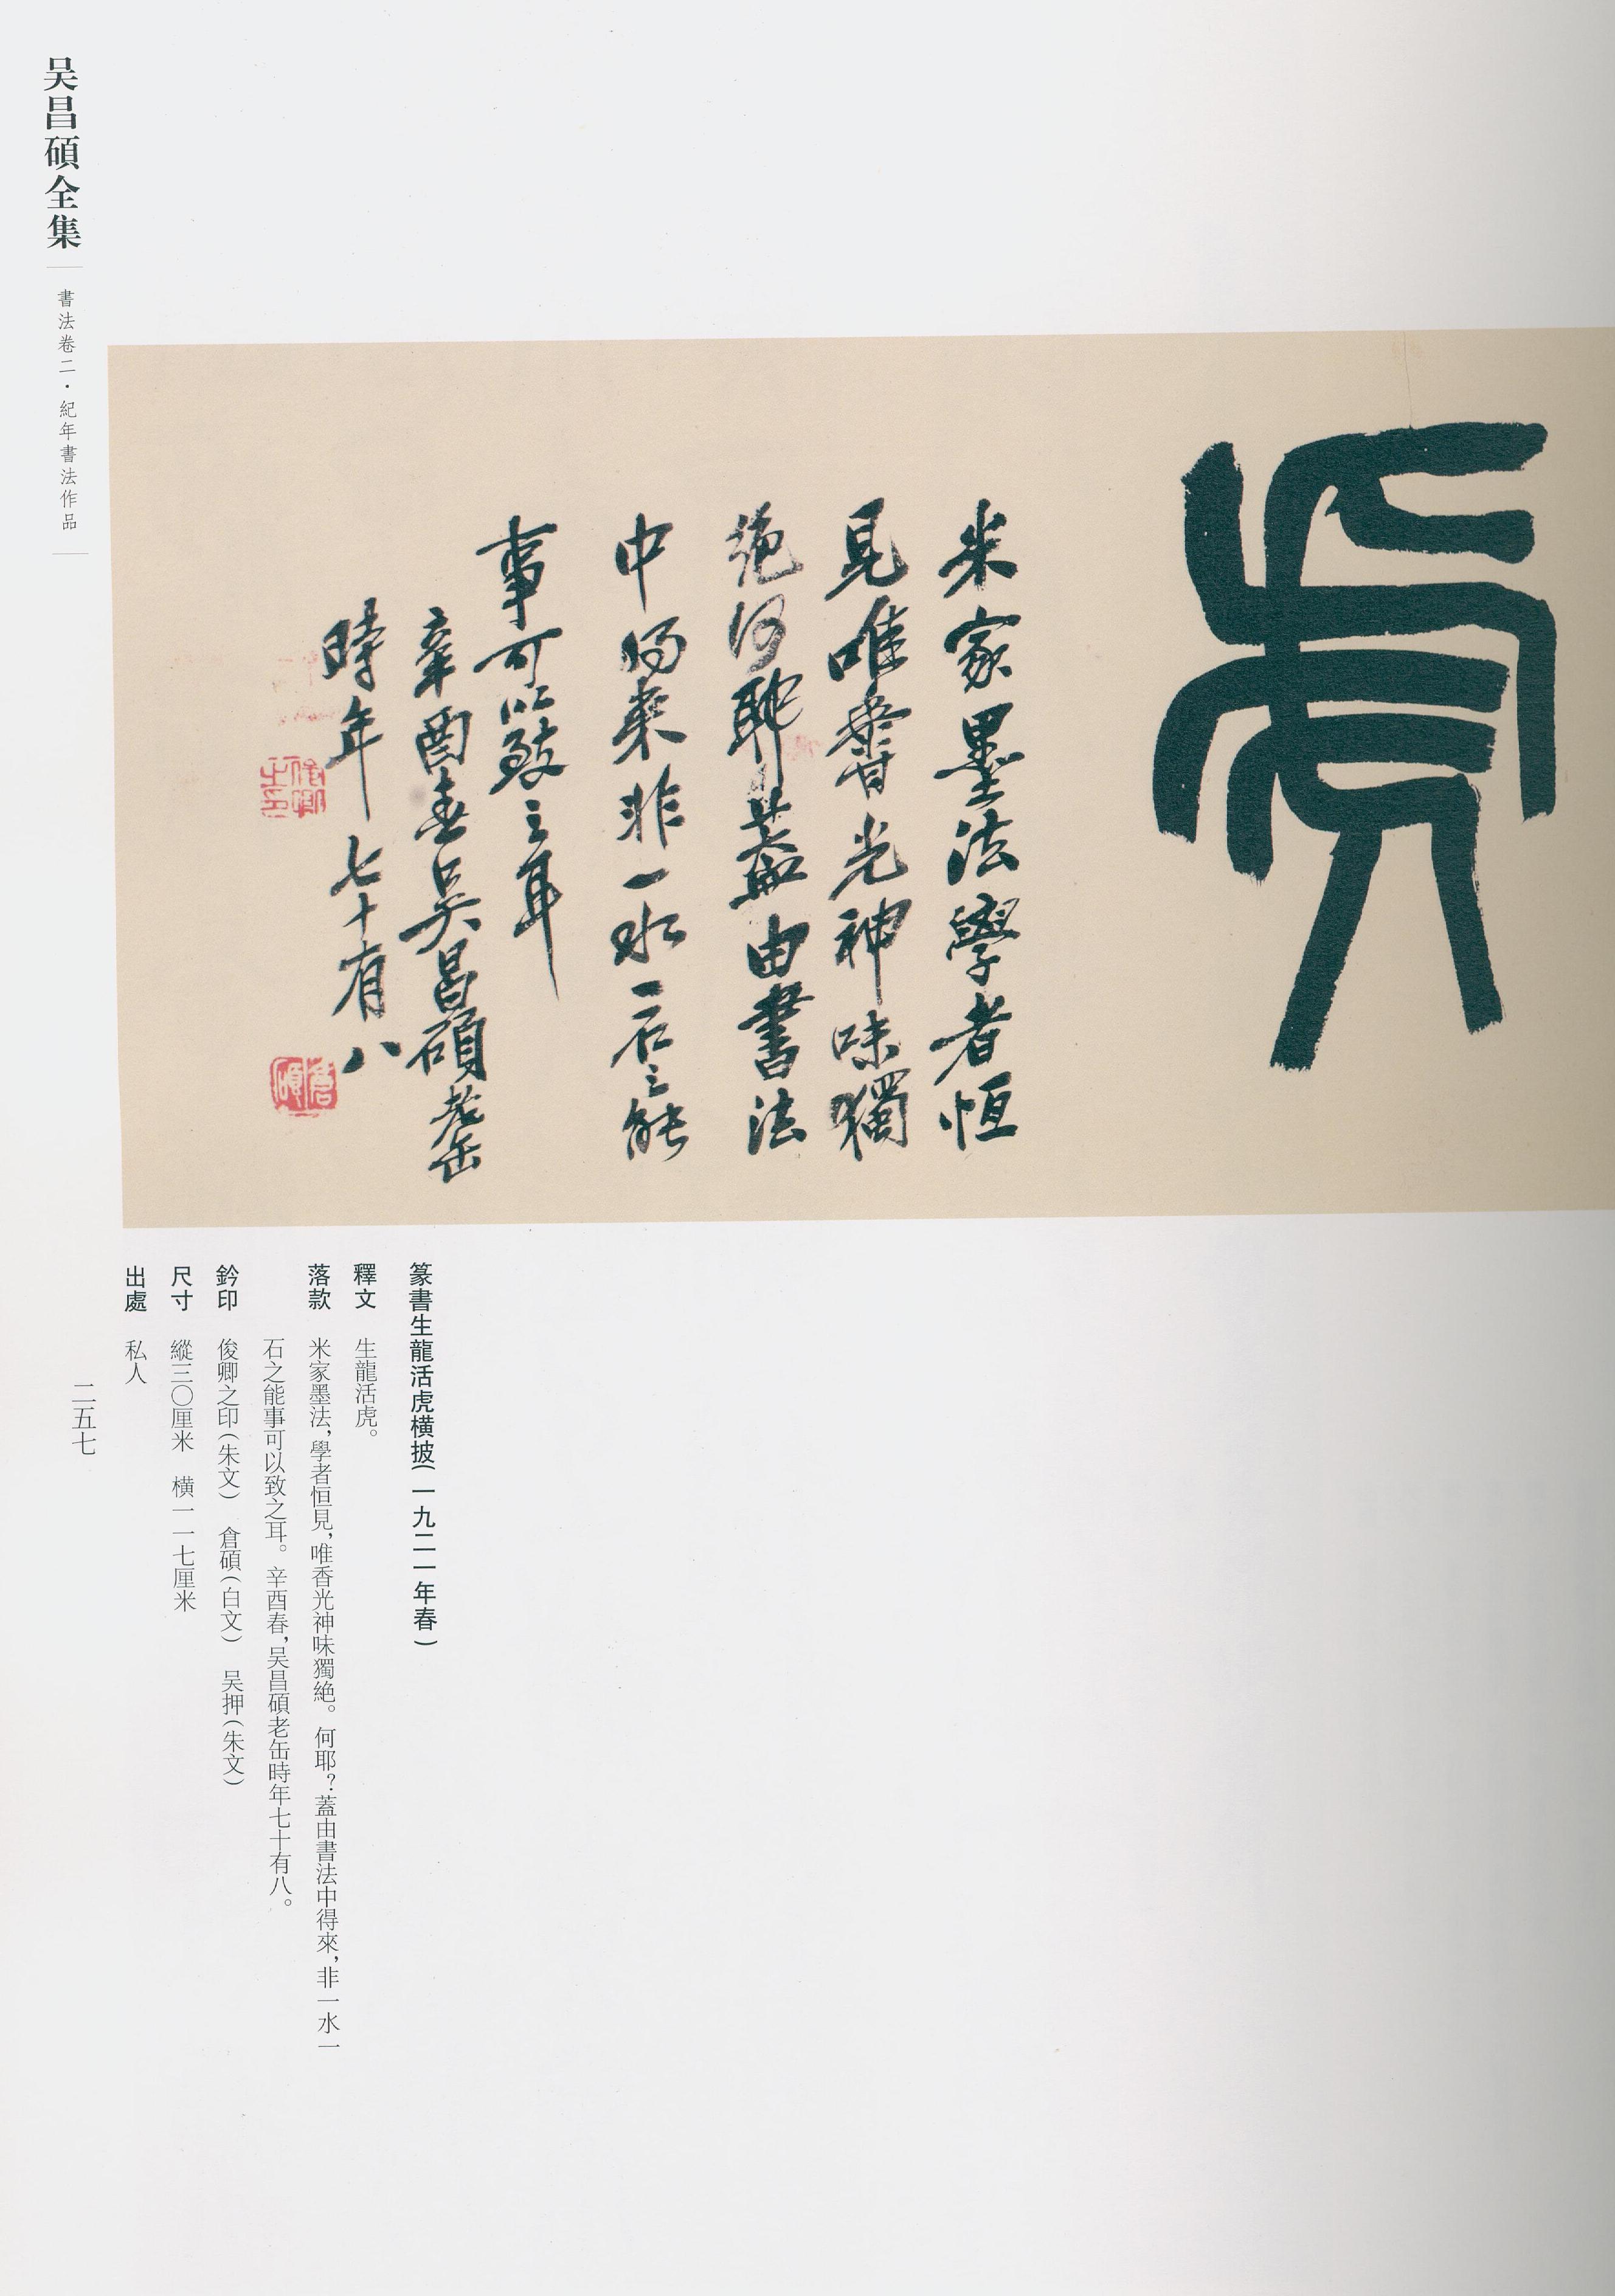 吴昌碩全集
書法卷二·紀年書法作品
虎
米家墨法學者恒
見唯香光神味獨
絶何耶蓋由書法
中得來非一水一石之能
事可以致之耳
辛酉春吴昌碩老缶
時年七十有八
俊卿之印
倉碩
篆書生龍活虎横披(一九二一年春)
釋文 生龍活虎。
落款 米家墨法,學者恒見,唯香光神味獨絶。何耶?蓋由書法中得來,非一水一
石之能事可以致之耳。辛酉春,吴昌碩老缶時年七十有八。
鈐印 俊卿之印(朱文) 倉碩(白文) 吴押(朱文)
尺寸 縱三〇厘米 横一一七厘米
出處 私人
二五七